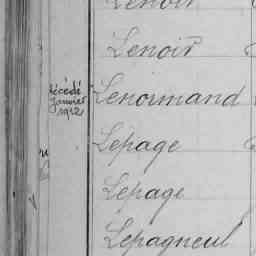 Lenoir
Lenoir
décédé
Janvier
1912
Lenormand
Lepage
Lepage
Lepagneul